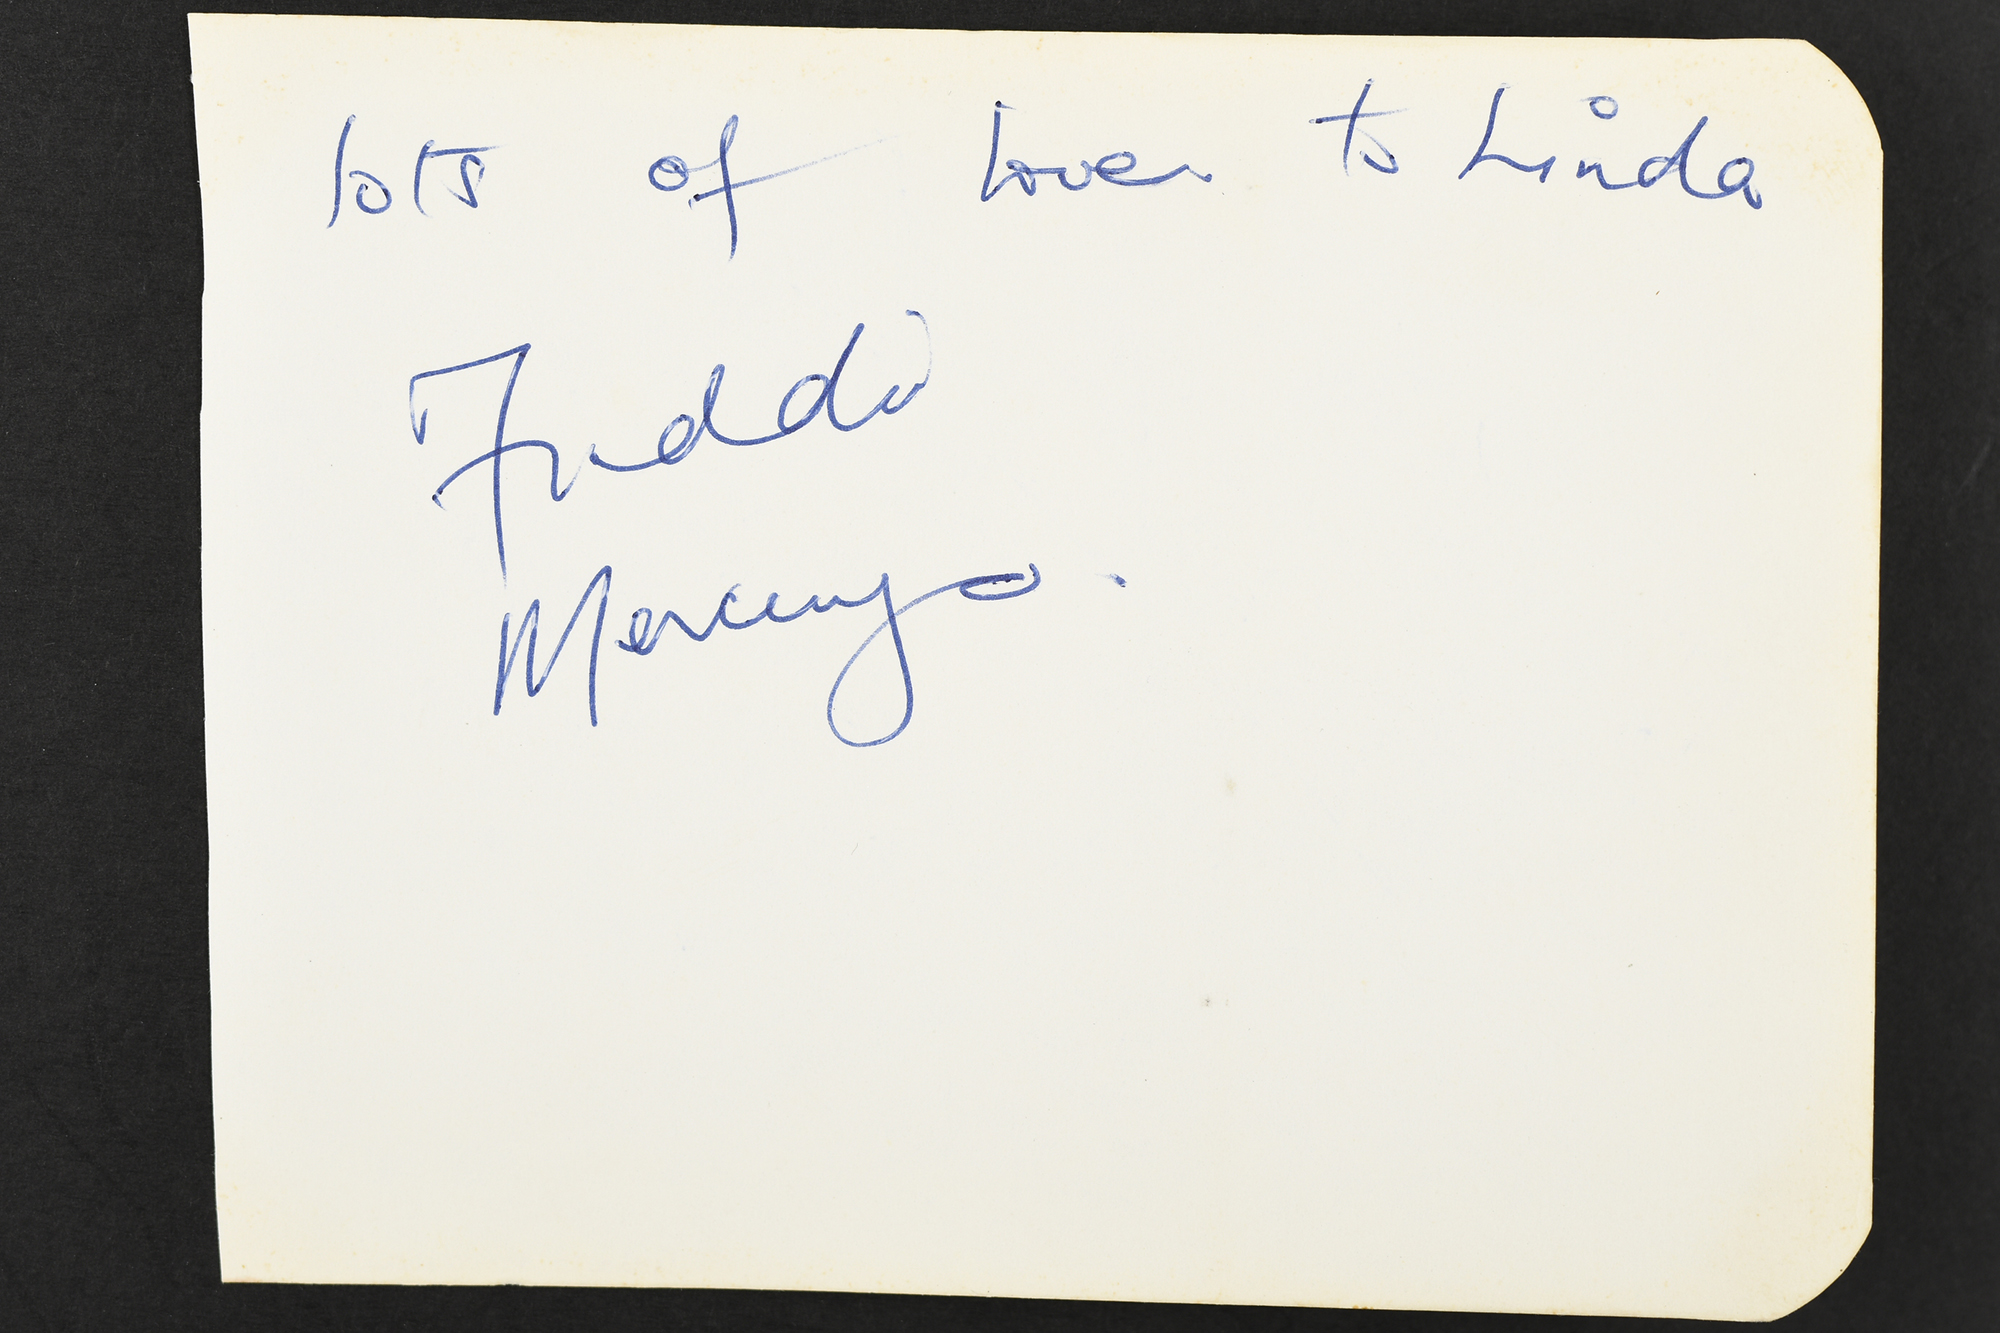 lots of love to Linda
Freddie
Mercury.